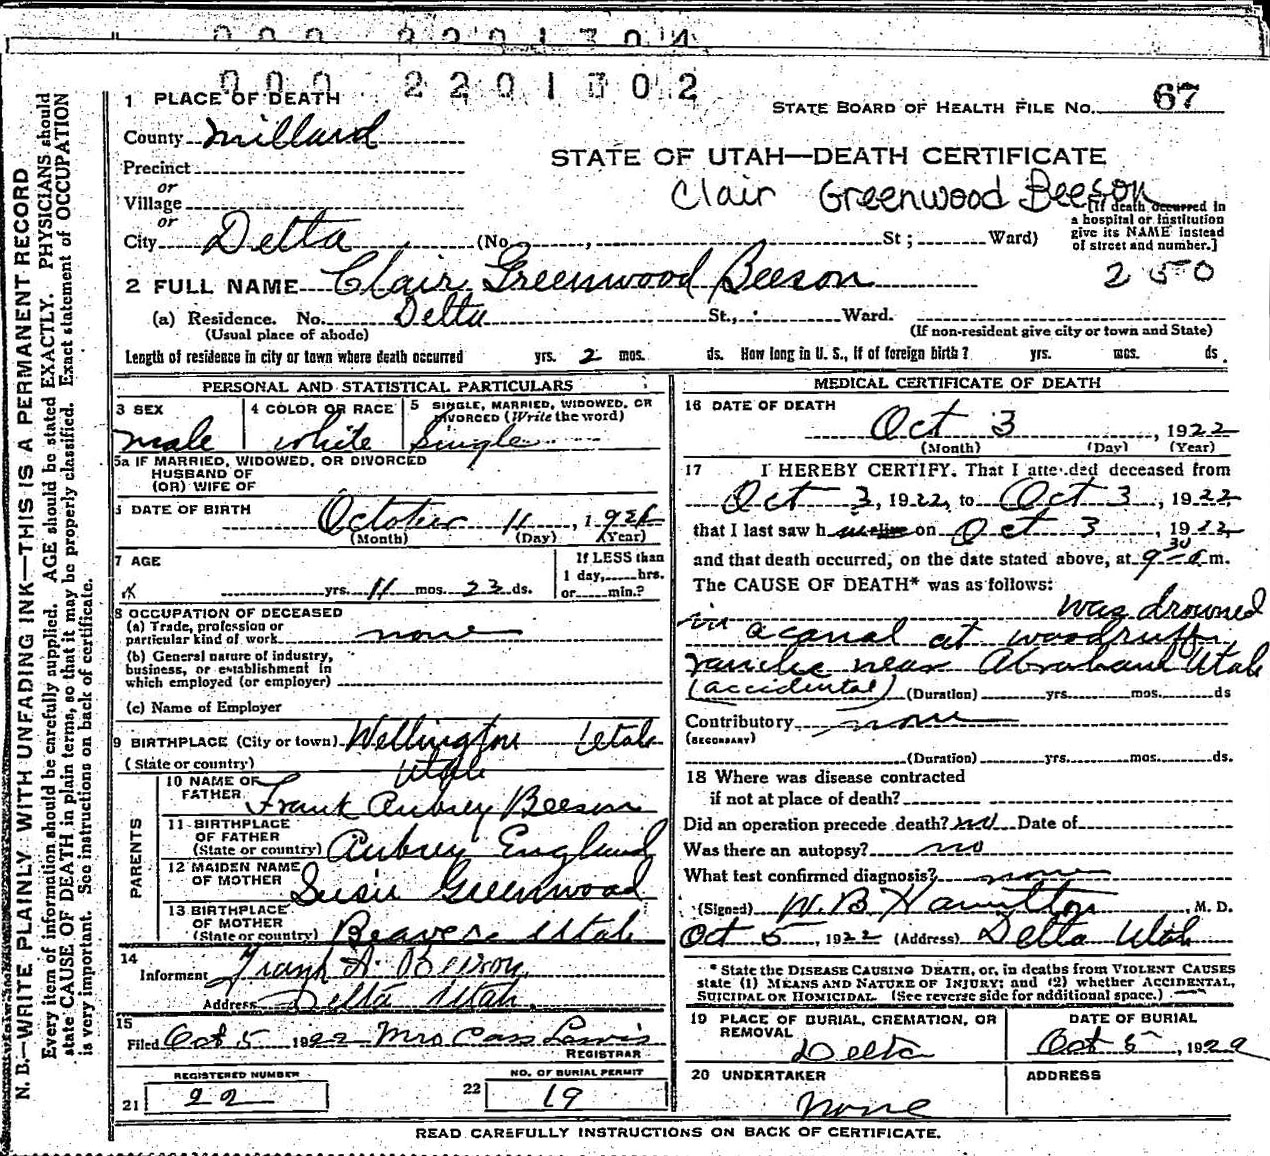 000 2201304
000 2201302
STATE BOARD OF HEALTH FILE NO. 67
1 PLACE OF DEATH
County Millard
STATE OF UTAH—DEATH CERTIFICATE
Precinct
or
Village
or
Clair Greenwood Beeson
City Delta (No. , St; Ward)
[If death occurred in
a hospital or institution
give its NAME instead
of street and number.]
250
2 FULL NAME Clair Greenwood Beeson
(a) Residence. No. Delta St., Ward.
(Usual place of abode) (If non-resident give city or town and State)
Length of residence in city or town where death occurred yrs. 2 mos. ds. How long in U. S., if of foreign birth? yrs. mos. ds.
PERSONAL AND STATISTICAL PARTICULARS
3 SEX 4 COLOR OR RACE 5 SINGLE, MARRIED, WIDOWED, OR
DIVORCED (Write the word)
male white Single
5a IF MARRIED, WIDOWED, OR DIVORCED
HUSBAND OF
(OR) WIFE OF
DATE OF BIRTH October 11, 192
(Month) (Day) (Year)
7 AGE If LESS than
1 day, hrs.
yrs. 11 mos. 23 ds. or min.?
8 OCCUPATION OF DECEASED
(a) Trade, profession or
particular kind of work none
(b) General nature of industry,
business, or establishment in
which employed (or employer)
(c) Name of Employer
9 BIRTHPLACE (City or town) Wellington Utah
(State or country) Utah
PARENTS
10 NAME OF
FATHER Frank Aubrey Beeson
11 BIRTHPLACE
OF FATHER
(State or country) Aubrey England
12 MAIDEN NAME
OF MOTHER Susie Greenwood
13 BIRTHPLACE
OF MOTHER
(State or country) Beaver Utah
14
Informent Frank A. Beeson
Address Delta Utah.
15
Filed Oct 5 1922 Mrs Cass Lewis
REGISTRAR
REGISTERED NUMBER NO. OF BURIAL PERMIT
21 22 22 19
MEDICAL CERTIFICATE OF DEATH
16 DATE OF DEATH
Oct 3, 1922
(Month) (Day) (Year)
17 I HEREBY CERTIFY, That I attended deceased from
Oct 3, 1922, to Oct 3, 1922
that I last saw h on Oct 3, 1922,
and that death occurred, on the date stated above, at 9 30 a m.
The CAUSE OF DEATH* was as follows:
was drowned
in a canal at woodruff
ranche near Abraham Utah
(accidental) (Duration) yrs. mos. ds
Contributory none
(SECONDARY)
(Duration) yrs. mos. ds.
18 Where was disease contracted
if not at place of death?
Did an operation precede death? no Date of
Was there an autopsy? no
What test confirmed diagnosis? none
(Signed) W. B Hamilton, M. D.
Oct 5, 1922 (Address) Delta Utah
*State the DISEASE CAUSING DEATH, or, in deaths from VIOLENT CAUSES
state (1) MEANS AND NATURE OF INJURY; and (2) whether ACCIDENTAL,
SUICIDAL OR HOMICIDAL. (See reverse side for additional space.)
19 PLACE OF BURIAL, CREMATION, OR
REMOVAL
Delta
DATE OF BURIAL
Oct 5, 1922
20 UNDERTAKER
none
ADDRESS
READ CAREFULLY INSTRUCTIONS ON BACK OF CERTIFICATE.
N. B.—WRITE PLAINLY WITH UNFADING INK—THIS IS A PERMANENT RECORD
Every item of information should be carefully supplied. AGE should be stated EXACTLY. PHYSICIANS should
state CAUSE OF DEATH in plain terms, so that it may be properly classified. Exact statement of OCCUPATION
is very important. See instructions on back of certificate.